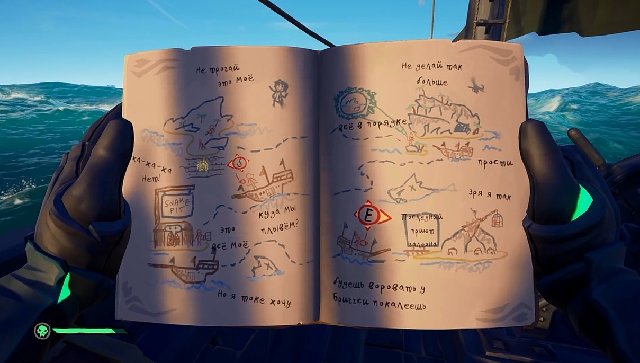 Не трогай
это моё
ха-ха-ха
Нет!
SNAKE
PIT
куда мы
плывём?
это
всё моё
Но я тоже хочу
Не делай так
больше
всё в порядке
прости
зря я так
E
приют
будешь воровать у
пожалеешь